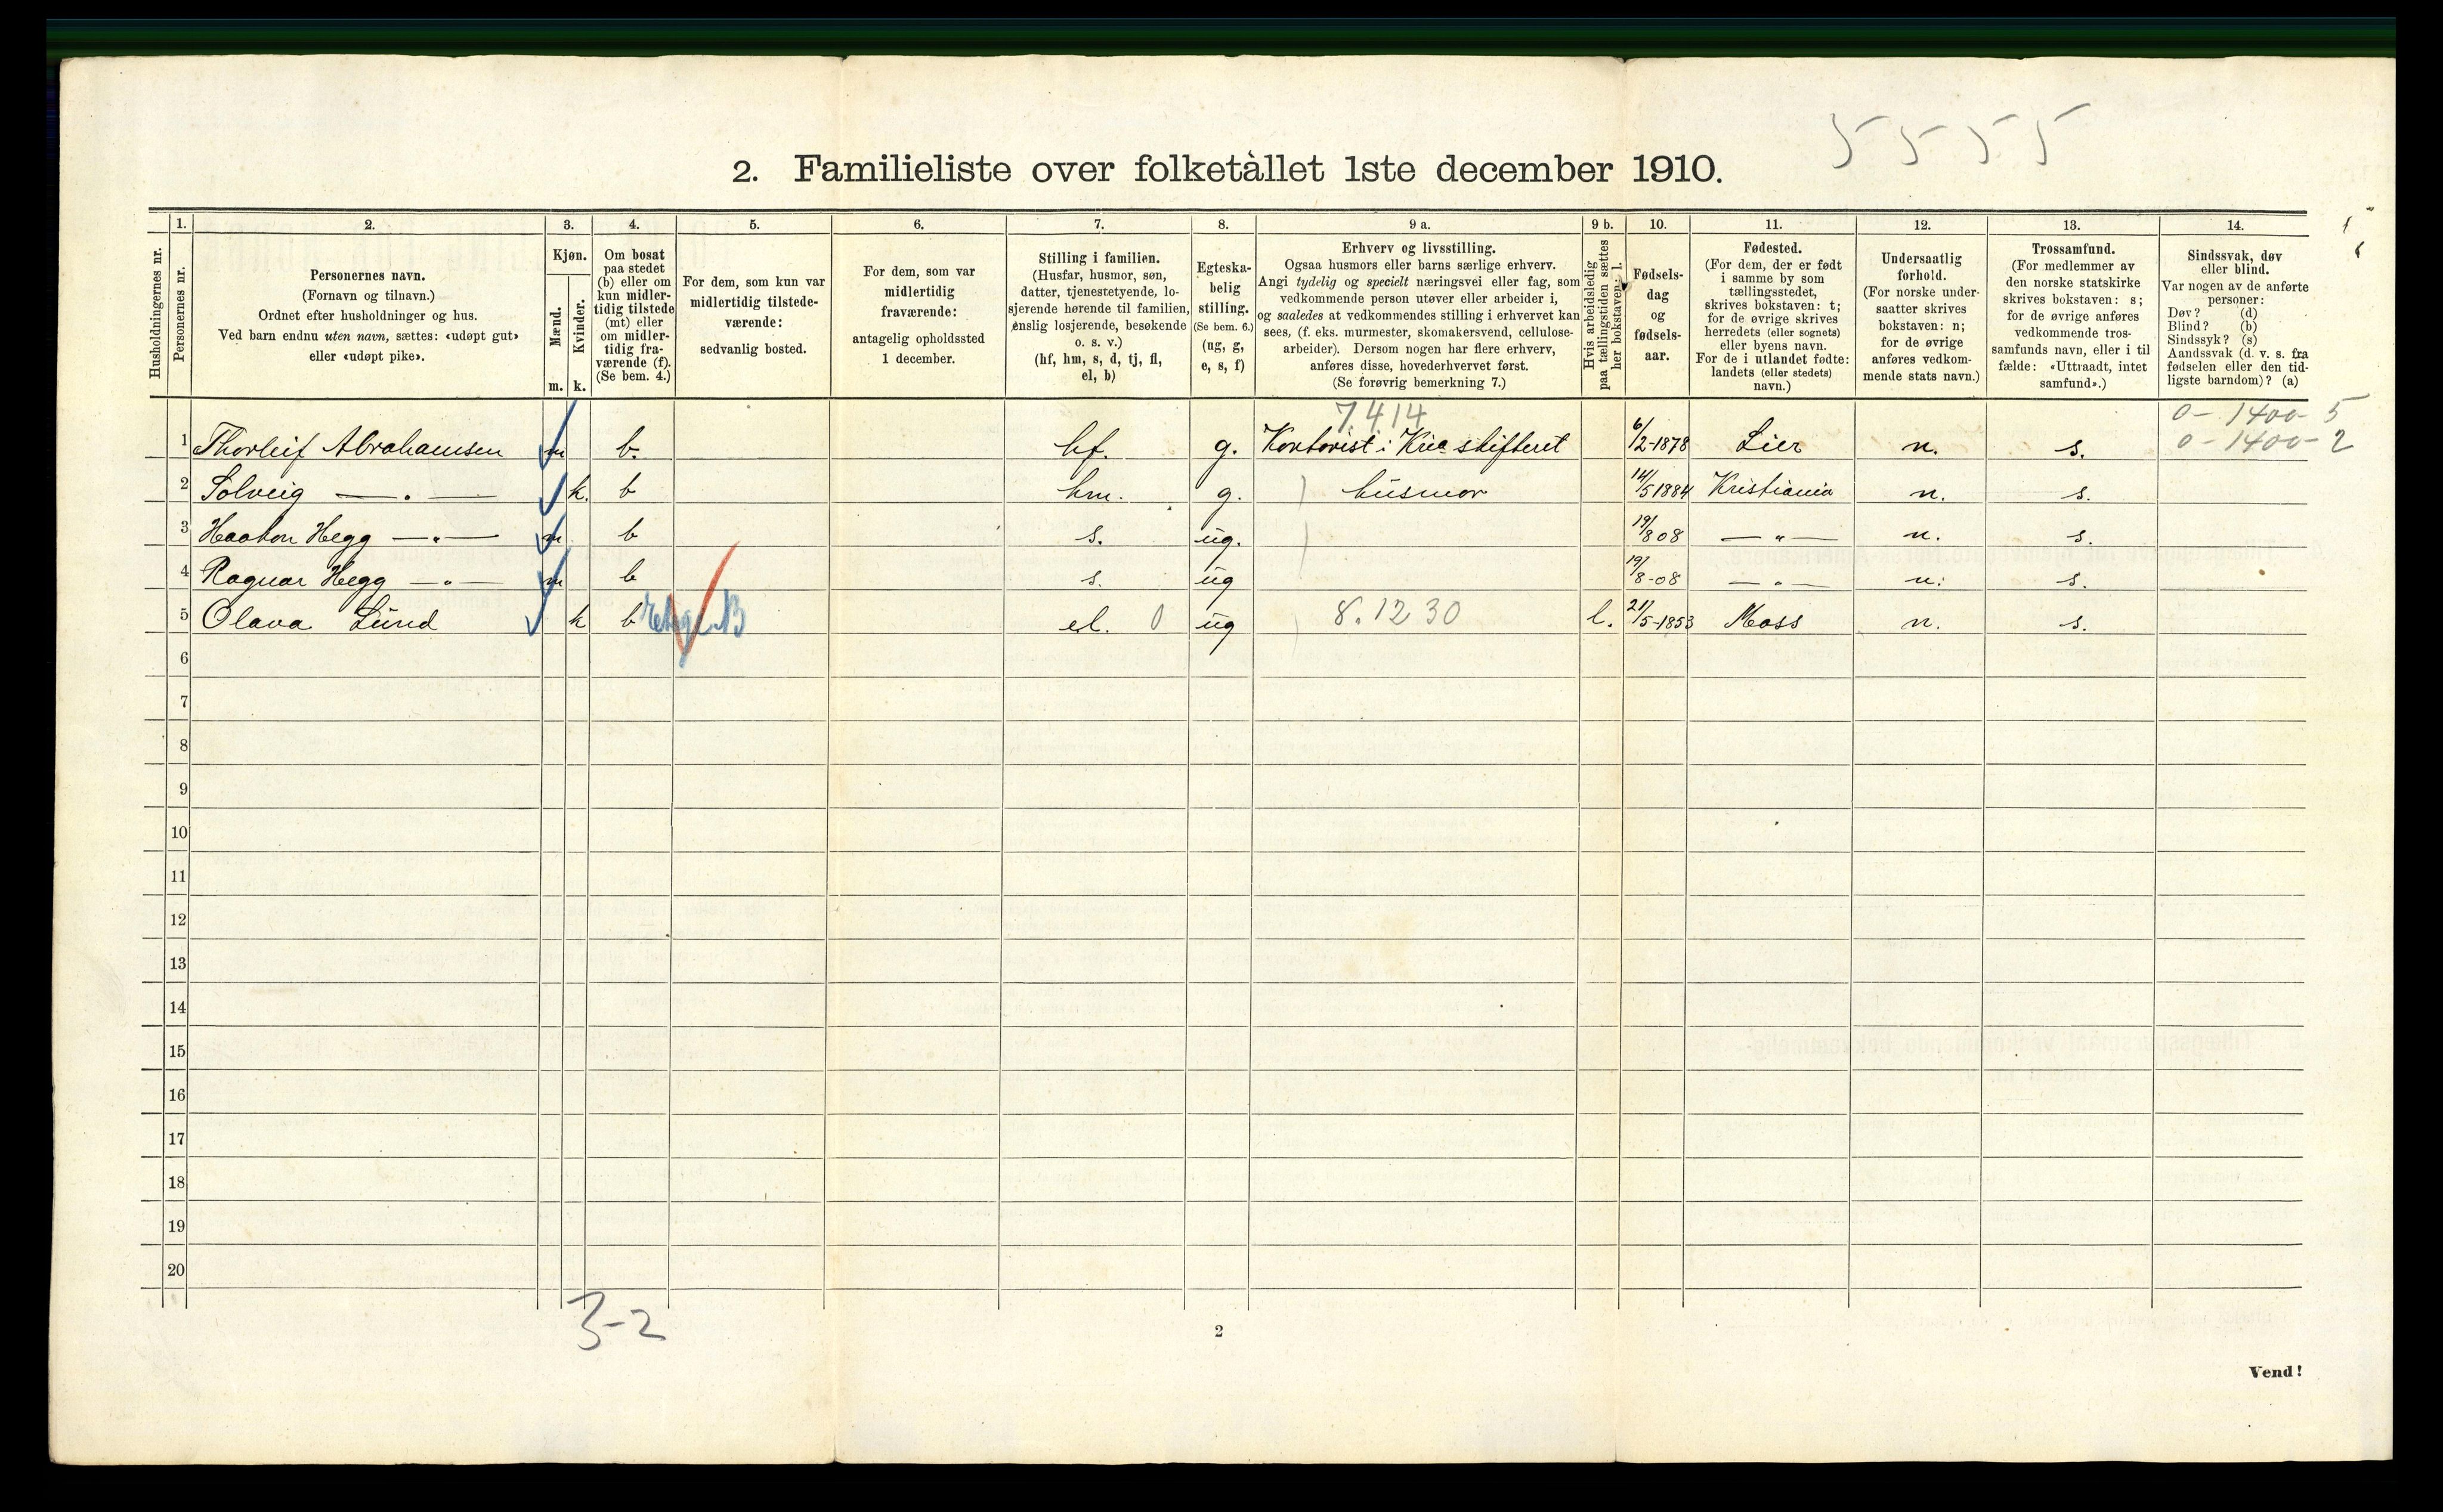 5 5 5 5
2. Familieliste over folketallet 1ste december 1910.
Husholdningernes nr.
1.
Personernes nr.
2.
Personernes navn.
(Fornavn og tilnavn.)
Ordnet efter husholdninger og hus.
Ved barn endnu uten navn, sættes: «udøpt gut»
eller «udøpt pike».
3.
Kjøn.
Mænd.
Kvinder.
m. k.
4.
Om bosat
paa stedet
(b) eller om
kun midler-
tidig tilstede
(mt) eller
om midler-
tidig fra-
værende (f).
(Se bem. 4.)
5.
For dem, som kun var
midlertidig tilstede-
værende:
sedvanlig bosted.
6.
For dem, som var
midlertidig
fraværende:
antagelig opholdssted
1 december.
7.
Stilling i familien.
(Husfar, husmor, søn,
datter, tjenestetyende, lo-
sjerende hørende til familien,
enslig losjerende, besøkende
o. s. v.)
(hf, hm, s, d, tj, fl,
el, b)
8.
Egteska-
belig
stilling.
(Se bem. 6.)
(ug, g,
e, s, f)
9 a.
Erhverv og livsstilling.
Ogsaa husmors eller barns særlige erhverv.
Angi tydelig og specielt næringsvei eller fag, som
vedkommende person utøver eller arbeider i,
og saaledes at vedkommendes stilling i erhvervet kan
sees, (f. eks. murmester, skomakersvend, cellulose-
arbeider). Dersom nogen har flere erhverv,
anføres disse, hovederhvervet først.
(Se forøvrig bemerkning 7.)
9 b.
Hvis arbeidsledig
paa tællingstiden sættes
her bokstaven: l.
10.
Fødsels-
dag
og
fødsels-
aar.
11.
Fødested.
(For dem, der er født
i samme by som
tællingsstedet,
skrives bokstaven: t;
for de øvrige skrives
herredets (eller sognets)
eller byens navn.
For de i utlandet fødte:
landets (eller stedets)
navn.)
12.
Undersaatlig
forhold.
(For norske under-
saatter skrives
bokstaven: n;
for de øvrige
anføres vedkom-
mende stats navn.)
13.
Trossamfund.
(For medlemmer av
den norske statskirke
skrives bokstaven: s;
for de øvrige anføres
vedkommende tros-
samfunds navn, eller i til
fælde: «Uttraadt, intet
samfund».)
14.
Sindssvak, døv
eller blind.
Var nogen av de anførte
personer:
Døv? (d)
Blind? (b)
Sindssyk? (s)
Aandssvak (d. v. s. fra
fødselen eller den tid-
ligste barndom)? (a)
7.4.14 0 - 1400 - 5
1 Thorleif Abrahamsen m b. hf. g. Kontorist i Kria stifteret 6/2-1878 Lier n. s. 0 - 1400 - 2
2 Solveig — „ — k. b hm. g. husmor 14/5 1884 Kristiania n. s.
3 Haakon Hegg — „ — m b s. ug. 19/8 08 — „ — n. s.
4 Ragnar Hegg — „ — m b s. ug 19/8-08 — „ — n. s.
5 Olava Lund k b el. 0 ug 8.12 30 l. 21/5-1853 Moss n. s.
6
7
8
9
10
11
12
13
14
15
16
17
18
19
20
3-2
2
Vend!